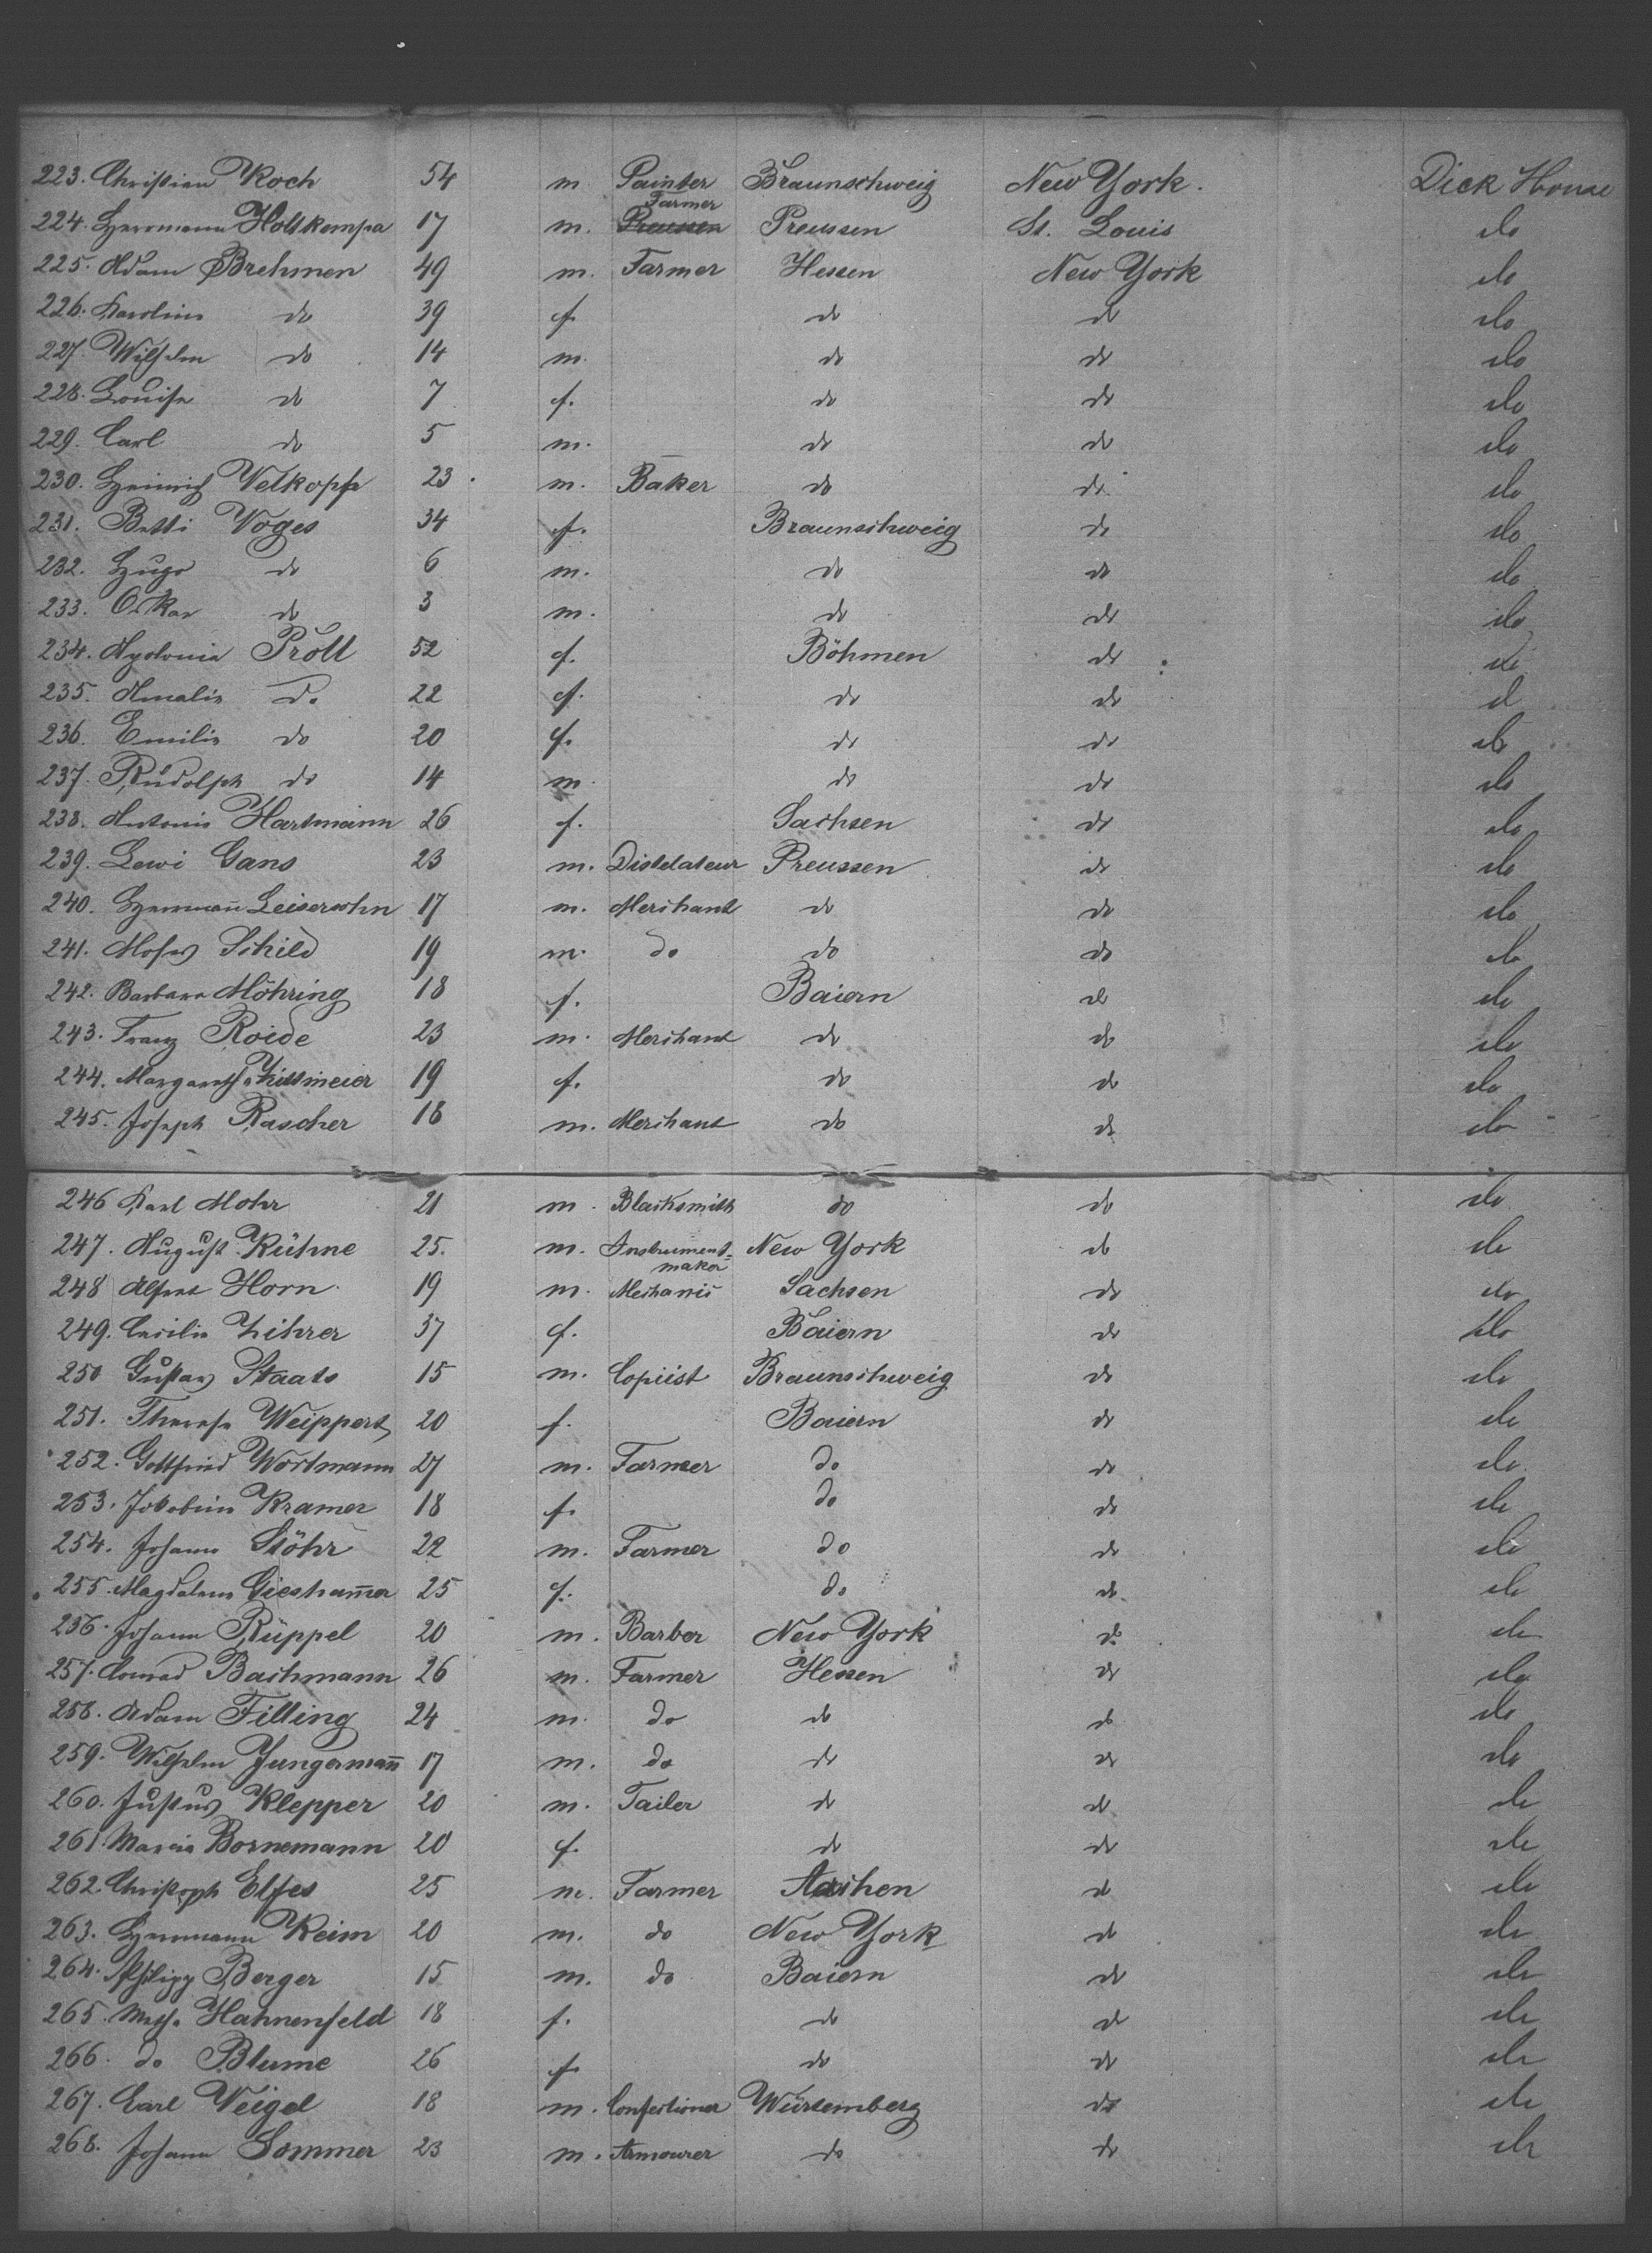 223. Christian Koch 54 m Painter Braunschweig New York. Dick House
Farmer
224. Herrmann Holtkampa 17 m. Preussen Preussen St. Louis do
225. Adam Brehmen 49 m. Farmer Hessen New York do
226. Karoline do 39 f. do do do
227. Wilhelm do 14 m. do do do
228. Louise do 7 f. do do do
229. Carl do 5 m. do do do
230. Heinrich Velkopf 23 m. Baker do do do
231. Betti Voges 34 f. Braunschweig do do
232. Hugo do 6 m. do do do
233. Oskar do 3 m. do do do
234. Apolonia Pröll 52 f. Böhmen do do
235. Amalie do 22 f. do do d
236. Emilie do 20 f. do do do
237. Rudolph do 14 m. do do do
238. Antonie Hartmann 26 f. Sachsen do do
239. Lewi Gans 23 m. Distelateur Preussen do do
240. Hermann̄ Leisersohn 17 m. Merchant do do do
241. Moses Schild 19 m. do do do do
242. Barbara Möhring 18 f. Baiern do do
243. Franz Roide 23 m. Merchant do do do
244. Margaretha 19 f. do do do
245. Joseph Rascher 18 m. Merchant do do do
246 Karl Mohr 21 m. Blacksmith do do do
247. August Kühne 25. m. Instrument= New York do do
maker
248 Alfred Horn 19 m. Mechanic Sachsen do do
249. Cecilie Zihrer 37 f. Baiern do do
250 Gustav Staats 15 m. Copiist Braunschweig do do
251. Therese Weippert 20 f. Baiern do do
252. Gottfried Wortmann 27 m. Farmer do do do
253. Jakobine Kramer 18 f. do do do
254. Johann Stöhr 22 m. Farmer do do do
255. Magdalena Giesham̄er 25 f. do do do
256. Johann Rüppel 20 m. Barber New York do do
257. Conrad Bachmann 26 m. Farmer Hessen do do
258. Adam Filling 24 m. do do do do
259. Wilhelm Jungerman̄ 17 m. do do do do
260. Justus Klepper 20 m. Tailer do do do
261. Maria Bornemann 20 f. do do do
262. Christoph Elfes 25 m. Farmer Aachen do do
263. Hermann Keim 20 m. do New York do do
264. Philipp Berger 15 m. do Baiern do do
265. Hahnenfeld 18 f. do do do
266. do Blume 26 f. do do do
267. Carl Weigel 18 m. Confectioner Würtemberg do do
268. Johann Sommer 23 m. Armourer do do do